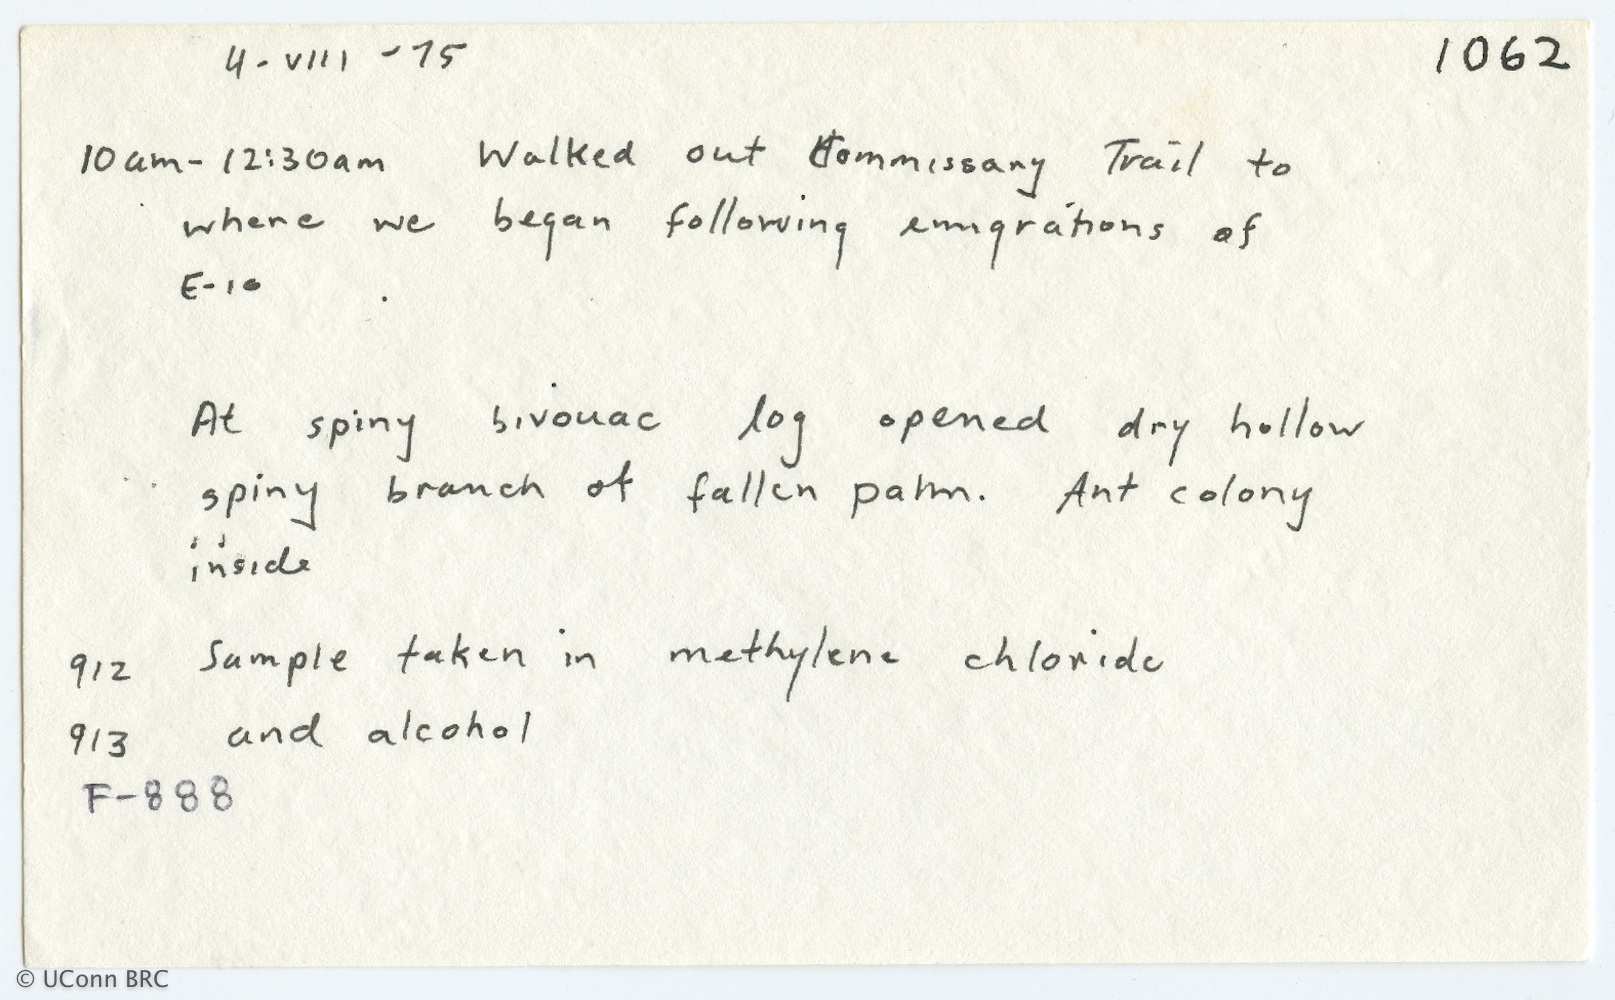 4-VIII-75
1062
10am-12:30am Walked out Commissary Trail to
where we began following emigrations of
E-10
At spiny bivouac log opened dry hollow
spiny branch of fallen palm. Ant colony
inside
912 Sample taken in methylene chloride
913 and alcohol
F-888
© UConn BRC